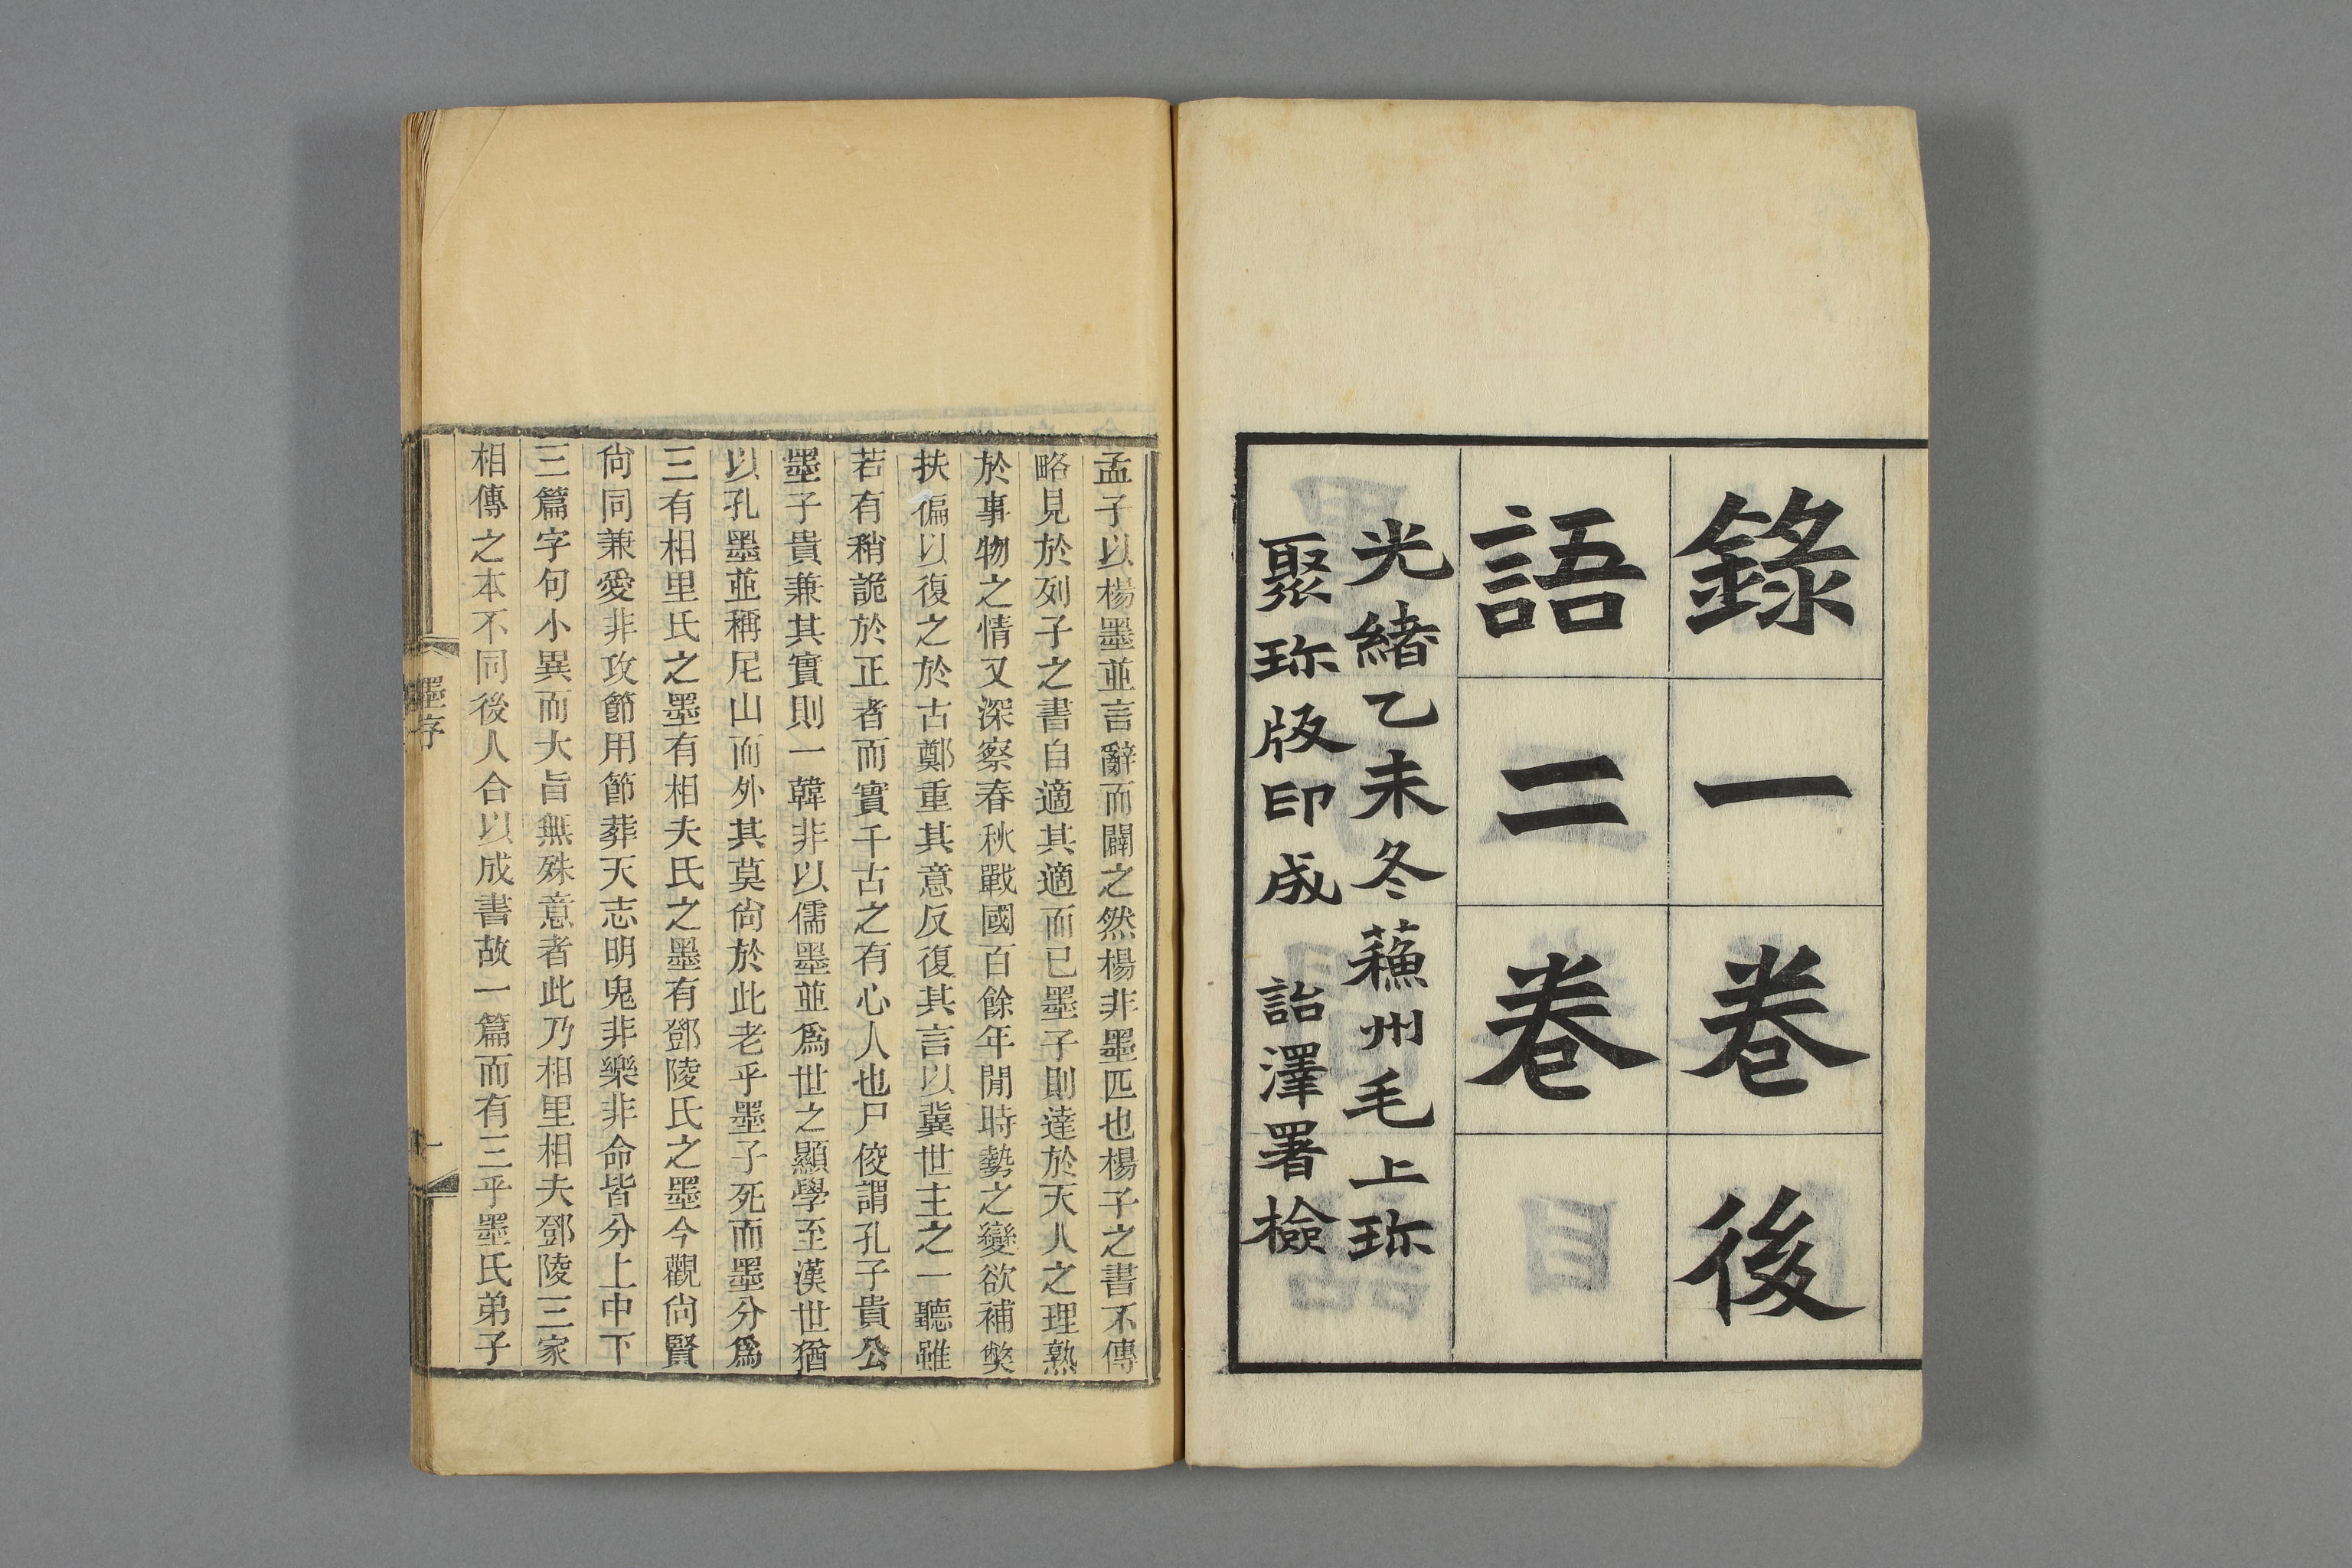 錄一卷後
語二卷
光緒乙未冬蘓州毛上珎
聚珎版印成　詒澤署檢
孟子以楊墨並言辭而闢之然楊非墨匹也楊子之書不傳
略見於列子之書自適其適而已墨子則達於天人之理熟
於事物之情又深察春秋戰國百餘年閒時勢之變欲補獘
扶偏以復之於古鄭重其意反復其言以冀世主之一聽雖
若有稍詭於正者而實千古之有心人也尸佼謂孔子貴公
墨子貴兼其實則一韓非以儒墨並爲世之顯學至漢世猶
以孔墨並稱尼山而外其莫尙於此老乎墨子死而墨分爲
三有相里氏之墨有相夫氏之墨有鄧陵氏之墨今觀尙賢
尙同兼愛非攻節用節葬天志明鬼非樂非命皆分上中下
三篇字句小異而大旨無殊意者此乃相里相夫鄧陵三家
相傳之本不同後人合以成書故一篇而有三乎墨氏弟子
墨序
一